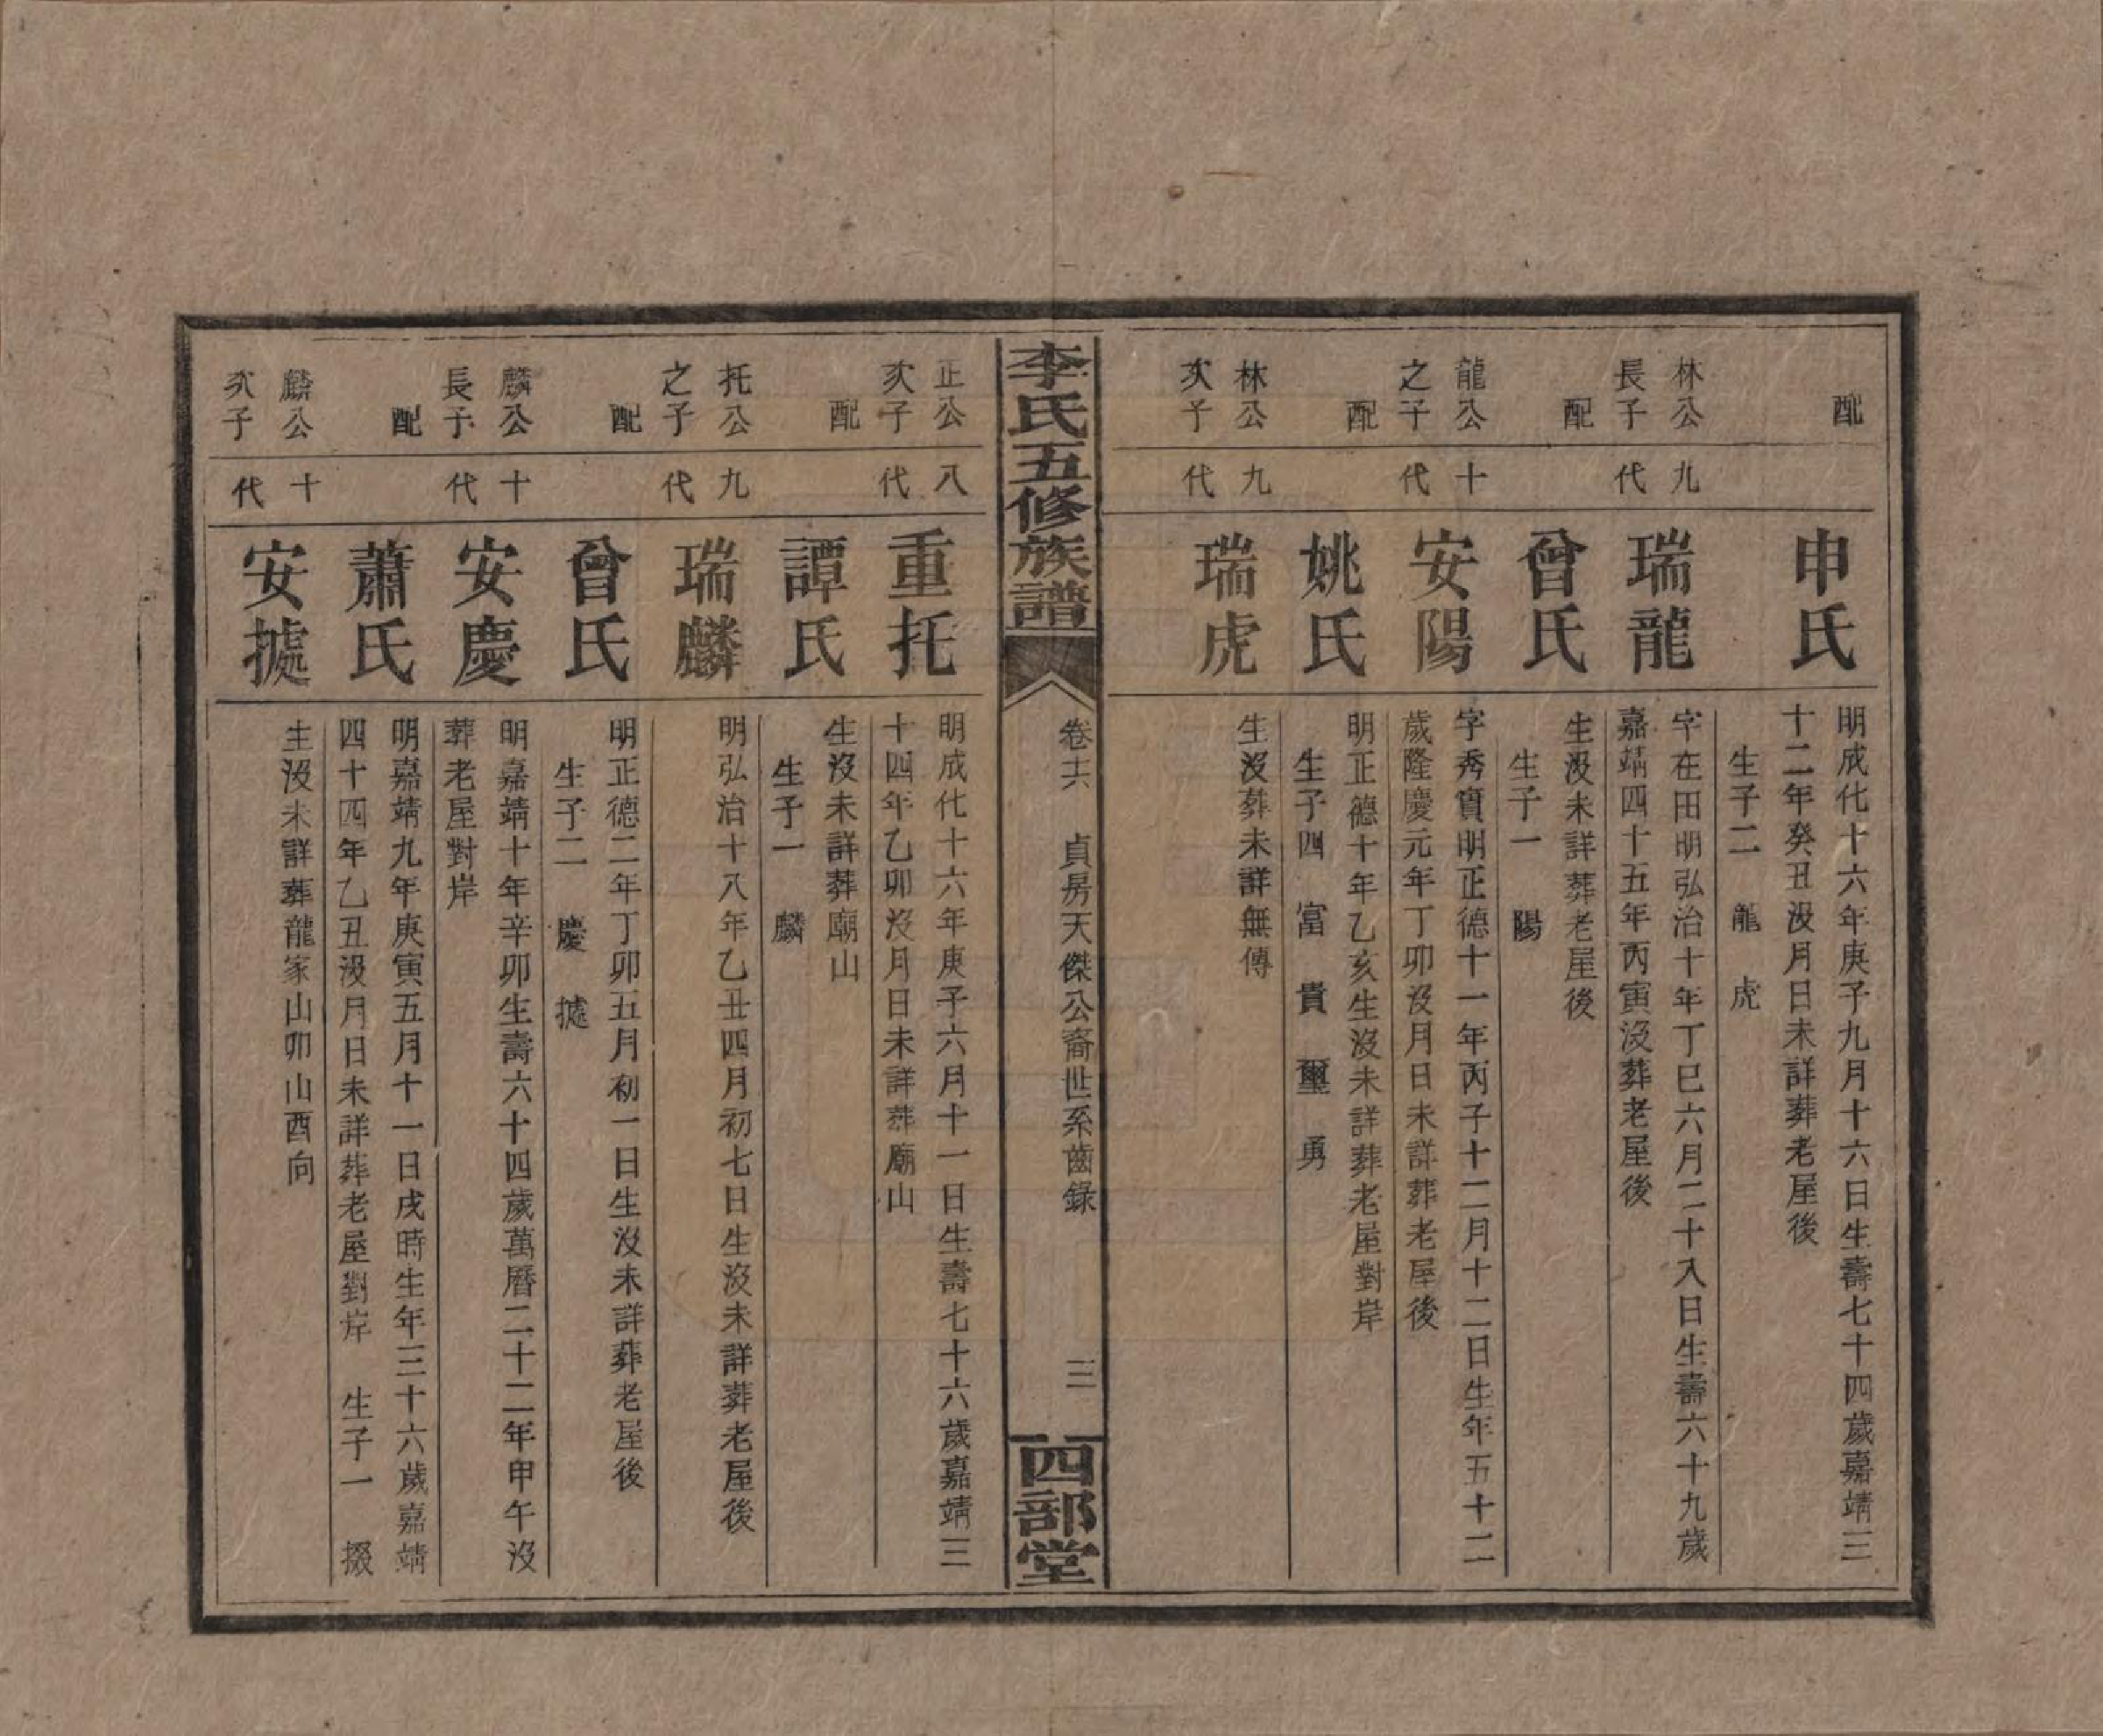 配
申氏
明成化十六年庚子九月十六日生壽七十四歲嘉靖三
十二年癸丑沒月日未詳葬老屋後
生子二 龍 虎
林公
長子
九
代
瑞龍
字在田明弘治十年丁巳六月二十八日生壽六十九歲
嘉靖四十五年丙寅沒葬老屋後
配
曾氏
生沒未詳葬老屋後
生子一 陽
龍公
之子
十
代
安陽
字秀實明正德十一年丙子十二月十二日生年五十二
歲隆慶元年丁卯沒月日未詳葬老屋後
配
姚氏
明正德十年乙亥生沒未詳葬老屋對岸
生子四 富 貴 璽 勇
林公
次子
九
代
瑞虎
生沒葬未詳無傳
李氏五修族譜
卷十六 貞房天傑公裔世系齒錄
三
四部堂
正公
次子
八
代
重托
明成化十六年庚子六月十一日生壽七十六歲嘉靖三
十四年乙卯沒月日未詳葬廟山
配
譚氏
生沒未詳葬廟山
生子一 麟
托公
之子
九
代
瑞麟
明弘治十八年乙丑四月初七日生沒未詳葬老屋後
配
曾氏
明正德二年丁卯五月初一日生沒未詳葬老屋後
生子二 慶 據
麟公
長子
十
代
安慶
明嘉靖十年辛卯生壽六十四歲萬曆二十二年甲午沒
葬老屋對岸
配
蕭氏
明嘉靖九年庚寅五月十一日戌時生年三十六歲嘉靖
四十四年乙丑沒月日未詳葬老屋對岸 生子一 掇
麟公
次子
十
代
安據
生沒未詳葬龍家山卯山酉向